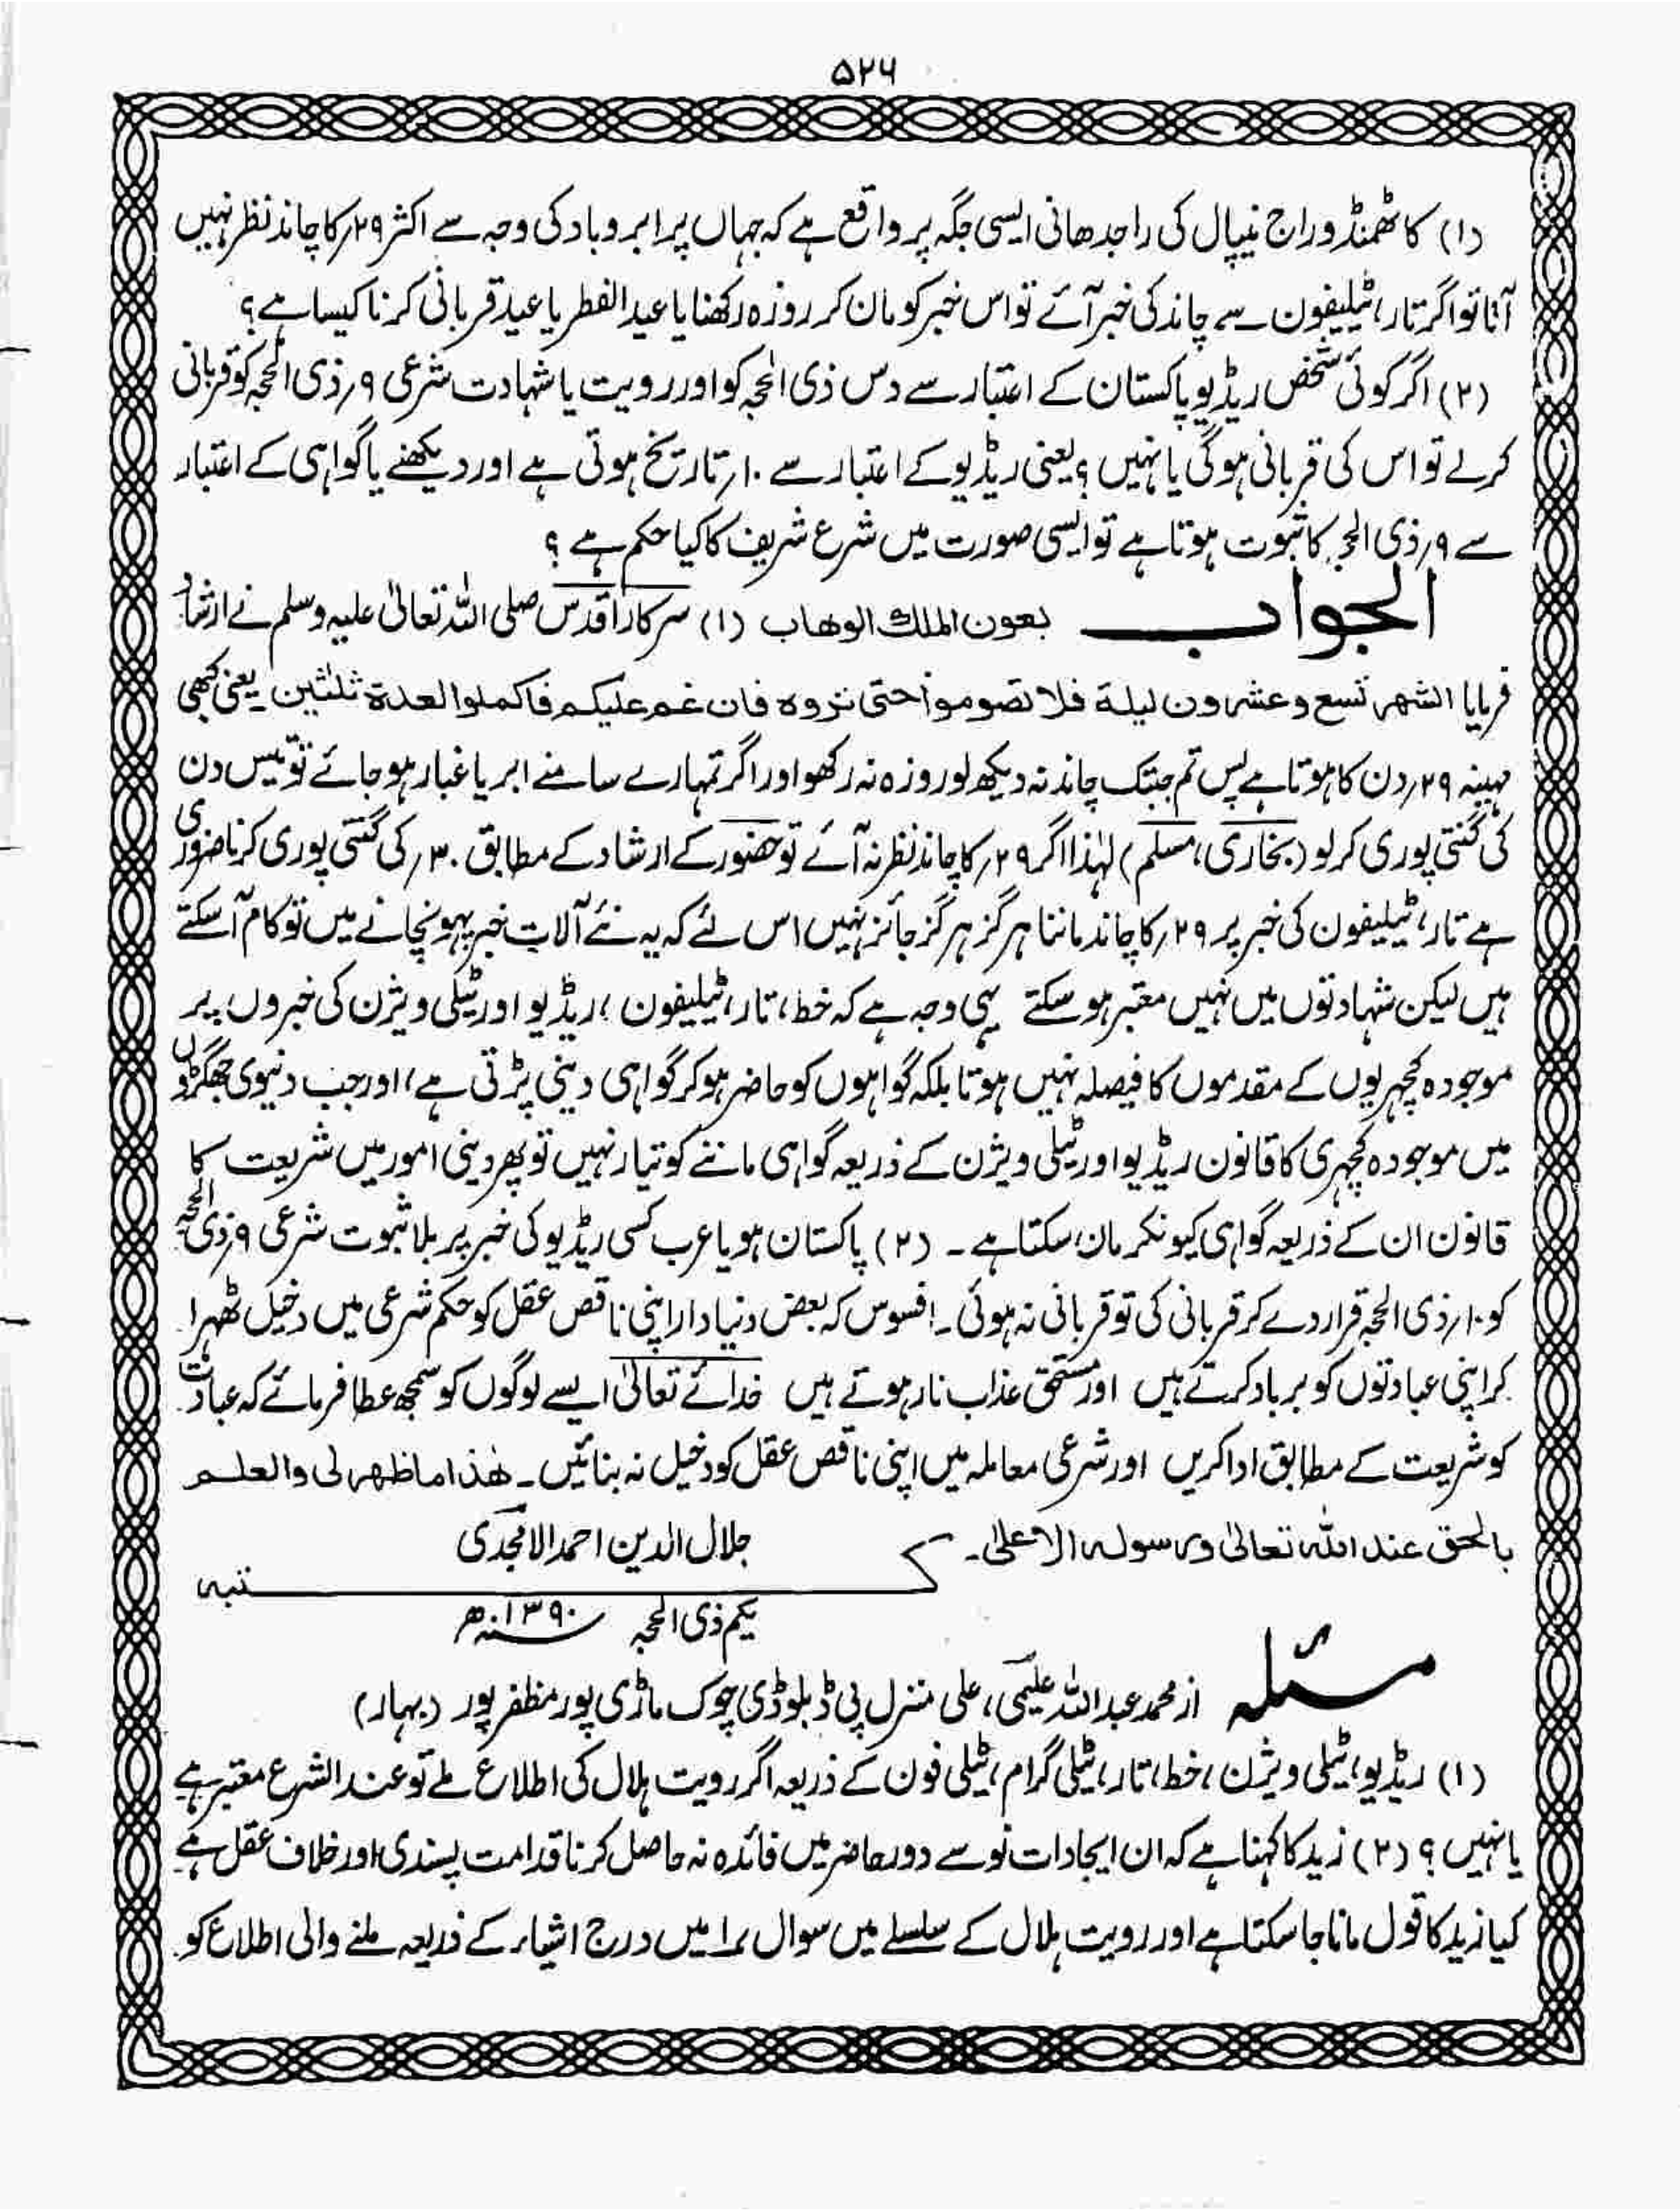 ۵۲۶
(۱) کاٹھمنڈو راج نیپال کی راجدھانی ایسی جگہ پر واقع ہے کہ جہاں پر ابر و باد کی وجہ سے اکثر ۲۹؍ کا چاند نظر نہیں
آتا تو اگر تار، ٹیلیفون سے چاند کی خبر آئے تو اس خبر کو مان کر روزہ رکھنا یا عید الفطر یا عید قربانی کرنا کیسا ہے؟
(۲) اگر کوئی شخص ریڈیو پاکستان کے اعتبار سے دس ذی الحجہ کو اور رویت یا شہادت شرعی ۹؍ ذی الحجہ کو قربانی
کرلے تو اس کی قربانی ہوگی یا نہیں؟ یعنی ریڈیو کے اعتبار سے ۱۰؍ تاریخ ہوتی ہے اور دیکھنے یا گواہی کے اعتبار
سے ۹؍ ذی الحجہ کا ثبوت ہوتا ہے تو ایسی صورت میں شرع شریف کا کیا حکم ہے؟
الجواب بعون الملك الوهاب (۱) سرکار اقدس صلی اللہ تعالیٰ علیہ وسلم نے ارشاد
فرمایا الشهر تسع وعشرون ليلة فلا تصوموا حتى تروه فان غم عليكم فاكملوا العدة ثلثين۔ یعنی کبھی
مہینہ ۲۹؍ دن کا ہوتا ہے پس تم جبتک چاند نہ دیکھ لو روزہ نہ رکھو اور اگر تمہارے سامنے ابر یا غبار ہو جائے تو تیس دن
کی گنتی پوری کرلو (بخاری، مسلم) لہٰذا اگر ۲۹؍ کا چاند نظر نہ آئے تو حضور کے ارشاد کے مطابق ۳۰؍ کی گنتی پوری کرنا ضروری
ہے تار، ٹیلیفون کی خبر پر ۲۹؍ کا چاند ماننا ہرگز ہرگز جائز نہیں اس لئے کہ یہ نئے آلات خبر پہونچانے میں تو کام آسکتے
ہیں لیکن شہادتوں میں نہیں معتبر ہو سکتے یہی وجہ ہے کہ خط، تار، ٹیلیفون، ریڈیو اور ٹیلی ویژن کی خبروں پر
موجودہ کچہریوں کے مقدموں کا فیصلہ نہیں ہوتا بلکہ گواہوں کو حاضر ہو کر گواہی دینی پڑتی ہے، اور جب دنیوی جھگڑوں
میں موجودہ کچہری کا قانون ریڈیو اور ٹیلی ویژن کے ذریعہ گواہی ماننے کو تیار نہیں تو پھر دینی امور میں شریعت کا
قانون ان کے ذریعہ گواہی کیونکر مان سکتا ہے۔ (۲) پاکستان ہو یا عرب کسی ریڈیو کی خبر پر بلا ثبوت شرعی ۹؍ ذی الحجہ
کو ۱۰؍ ذی الحجہ قرار دے کر قربانی کی تو قربانی نہ ہوئی۔ افسوس کہ بعض دنیا دار اپنی ناقص عقل کو حکم شرعی میں دخیل ٹھہرا
کر اپنی عبادتوں کو برباد کرتے ہیں اور مستحق عذاب نار ہوتے ہیں خدائے تعالیٰ ایسے لوگوں کو سمجھ عطا فرمائے کہ عبادت
کو شریعت کے مطابق ادا کریں اور شرعی معاملہ میں اپنی ناقص عقل کو دخیل نہ بنائیں۔ هذا ما ظهر لى والعلم
بالحق عند الله تعالىٰ ورسوله الاعلىٰ۔
جلال الدین احمد الامجدی
تبہ
یکم ذی الحجہ ۱۳۹۰ھ
مسئلہ از محمد عبد اللہ علیمی، علی منزل پی ڈبلو ڈی چوک ماڑی پور مظفر پور (بہار)
(۱) ریڈیو، ٹیلی ویژن، خط، تار، ٹیلی گرام، ٹیلی فون کے ذریعہ اگر رویت ہلال کی اطلاع ملے تو عند الشرع معتبر ہے
یا نہیں؟ (۲) زید کا کہنا ہے کہ ان ایجادات نو سے دور حاضر میں فائدہ نہ حاصل کرنا قدامت پسندی اور خلاف عقل ہے
کیا زید کا قول مانا جا سکتا ہے اور رویت ہلال کے سلسلے میں سوال ۱ میں درج اشیاء کے ذریعہ ملنے والی اطلاع کو